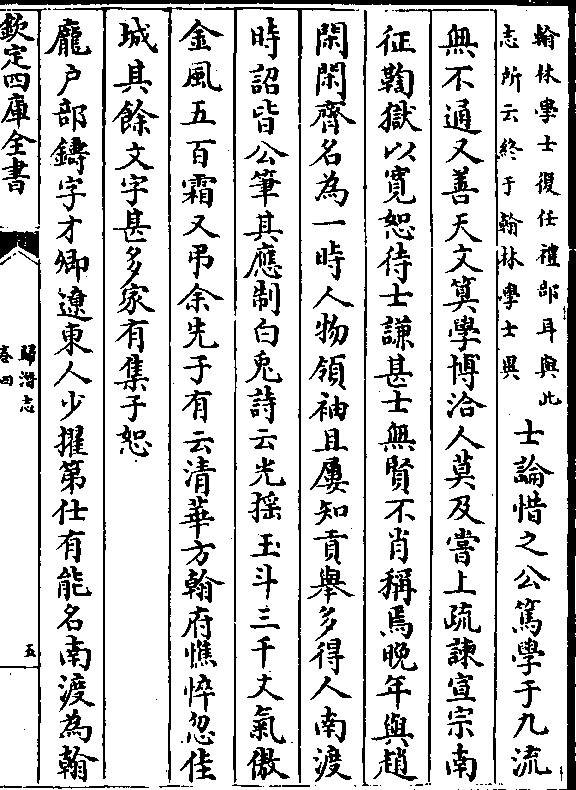 翰林學士復任禮部耳與此
志所云終于翰林學士異
士論惜之公篤學于九流
無不通又善天文筭學博洽人莫及嘗上疏諫宣宗南
征鞫獄以寛恕待士謙甚士無賢不肖稱焉晚年與趙
閑閑齊名為一時人物領袖且屢知貢舉多得人南渡
時詔皆公筆其應制白兎詩云光揺玉斗三千丈氣傲
金風五百霜又弔余先子有云清華方翰府憔悴忽佳
城其餘文字甚多家有集子恕
龎户部鑄字才卿遼東人少擢第仕有能名南渡為翰
欽定四庫全書
歸潜志
卷四
五